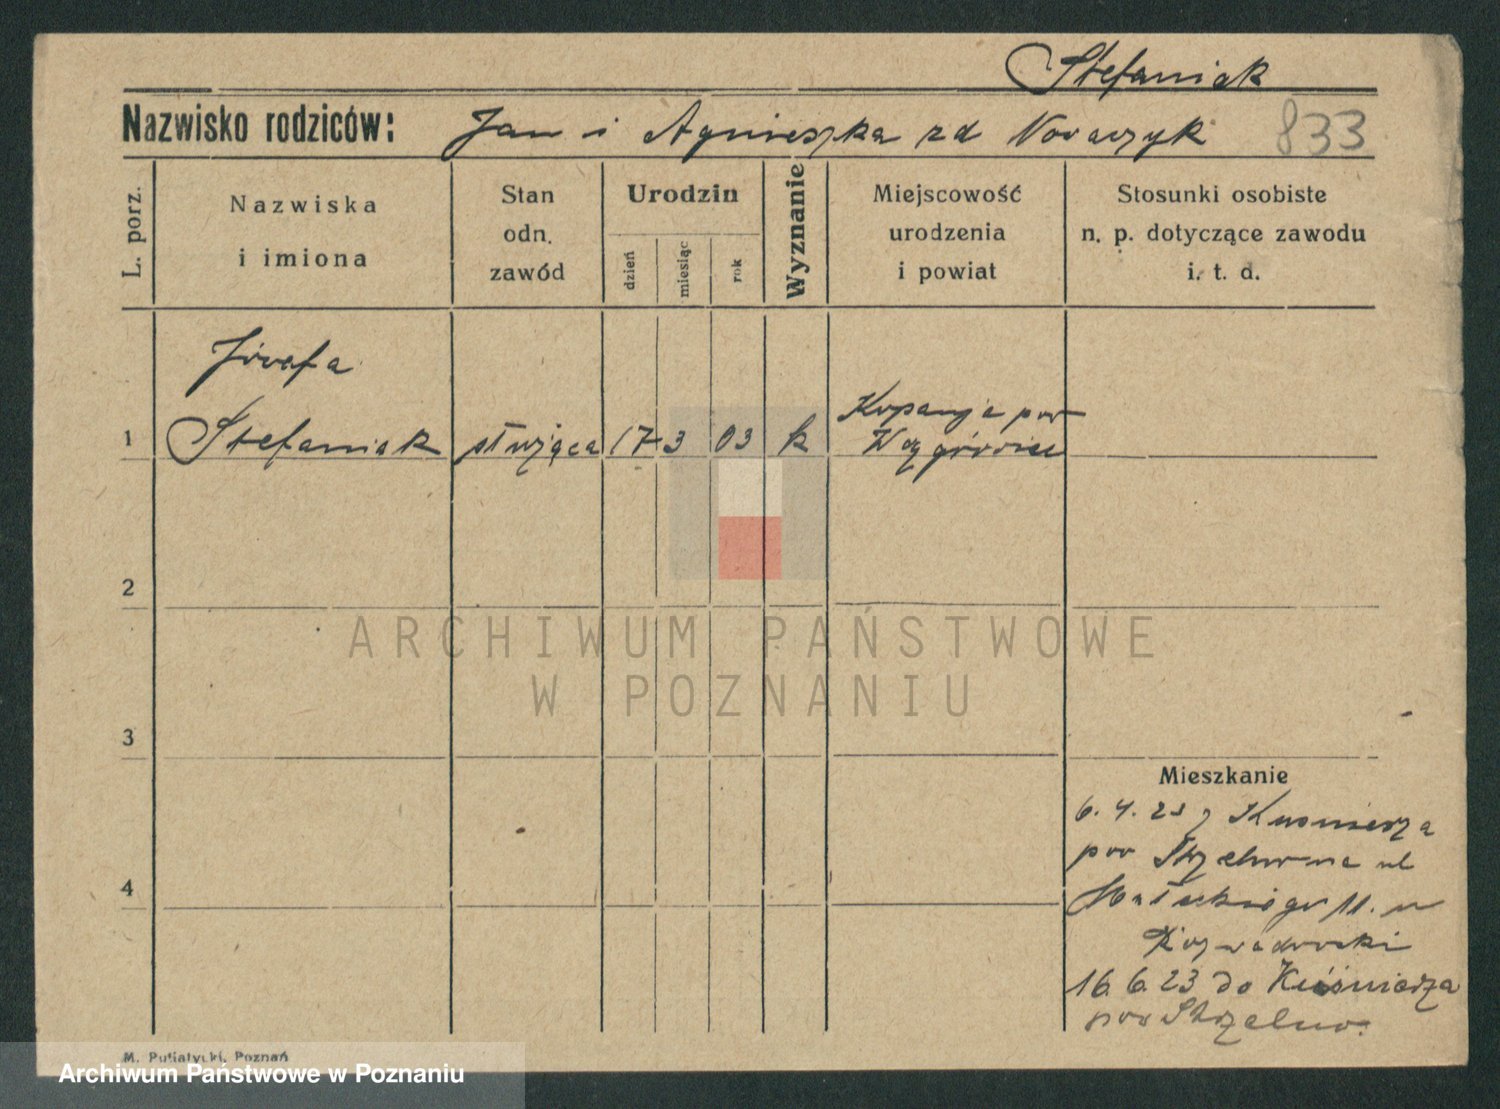 Stefaniak
Nazwisko rodziców: Jan i Agnieszka zd Nowaczyk 833
L. porz.
Nazwiska
i imiona
Stan
odn.
zawód
Urodzin
dzień
miesiąc
rok
Wyznanie
Miejscowość
urodzenia
i powiat
Stosunki osobiste
n. p. dotyczące zawodu
i. t. d.
Józefa
1 Stefaniak służąca 17 3 03 k
pow
2
ARCHIWUM PAŃSTWOWE
W POZNANIU
3
Mieszkanie
6. 4. 23 z Kuśnierza
pow ul
4
11. u
16. 6. 23 do Kuśnierza
pow Strzelno.
M. Putiatycki, Poznań
Archiwum Państwowe w Poznaniu